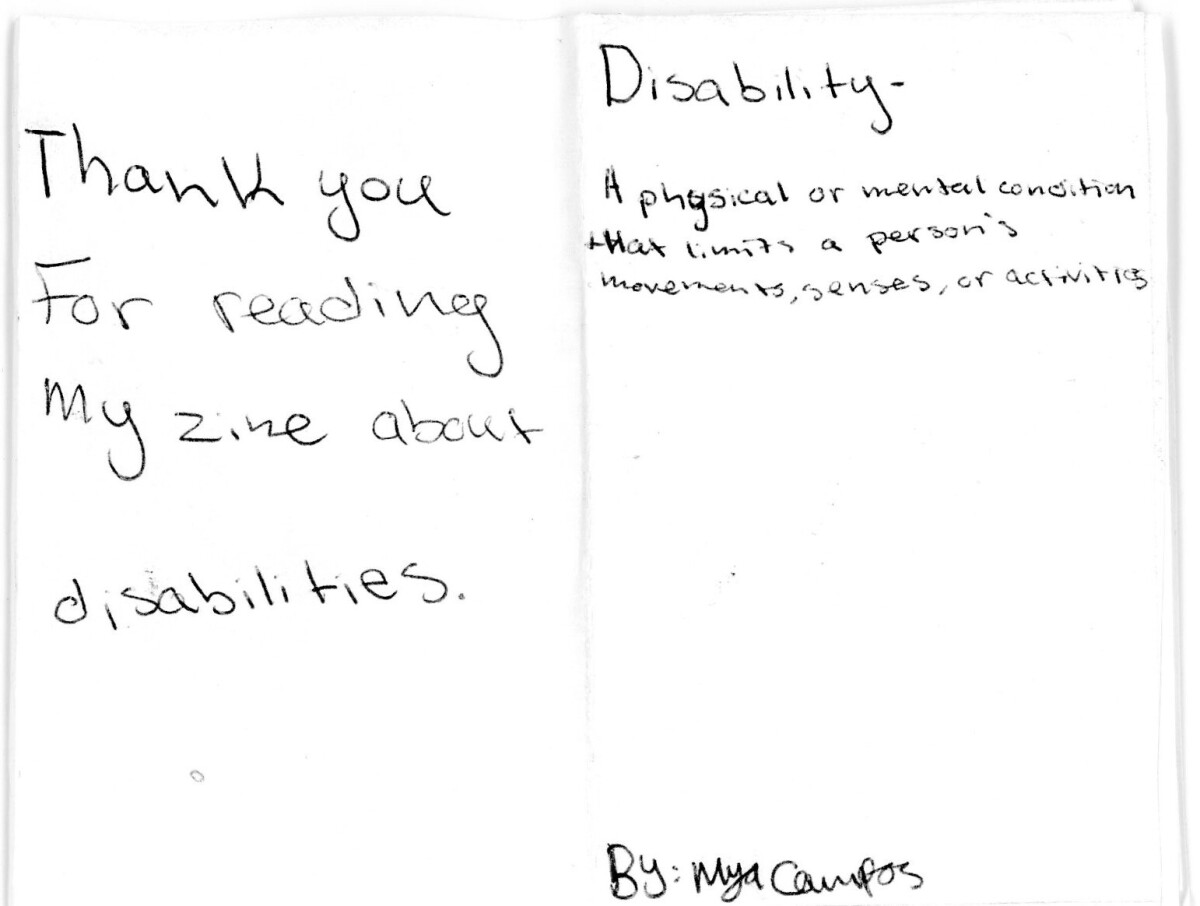 Thank you
For reading
My zine about
disabilities.
Disability-
A physical or mental condition
that limits a person's
movements, senses, or activities
By: Mya Campos